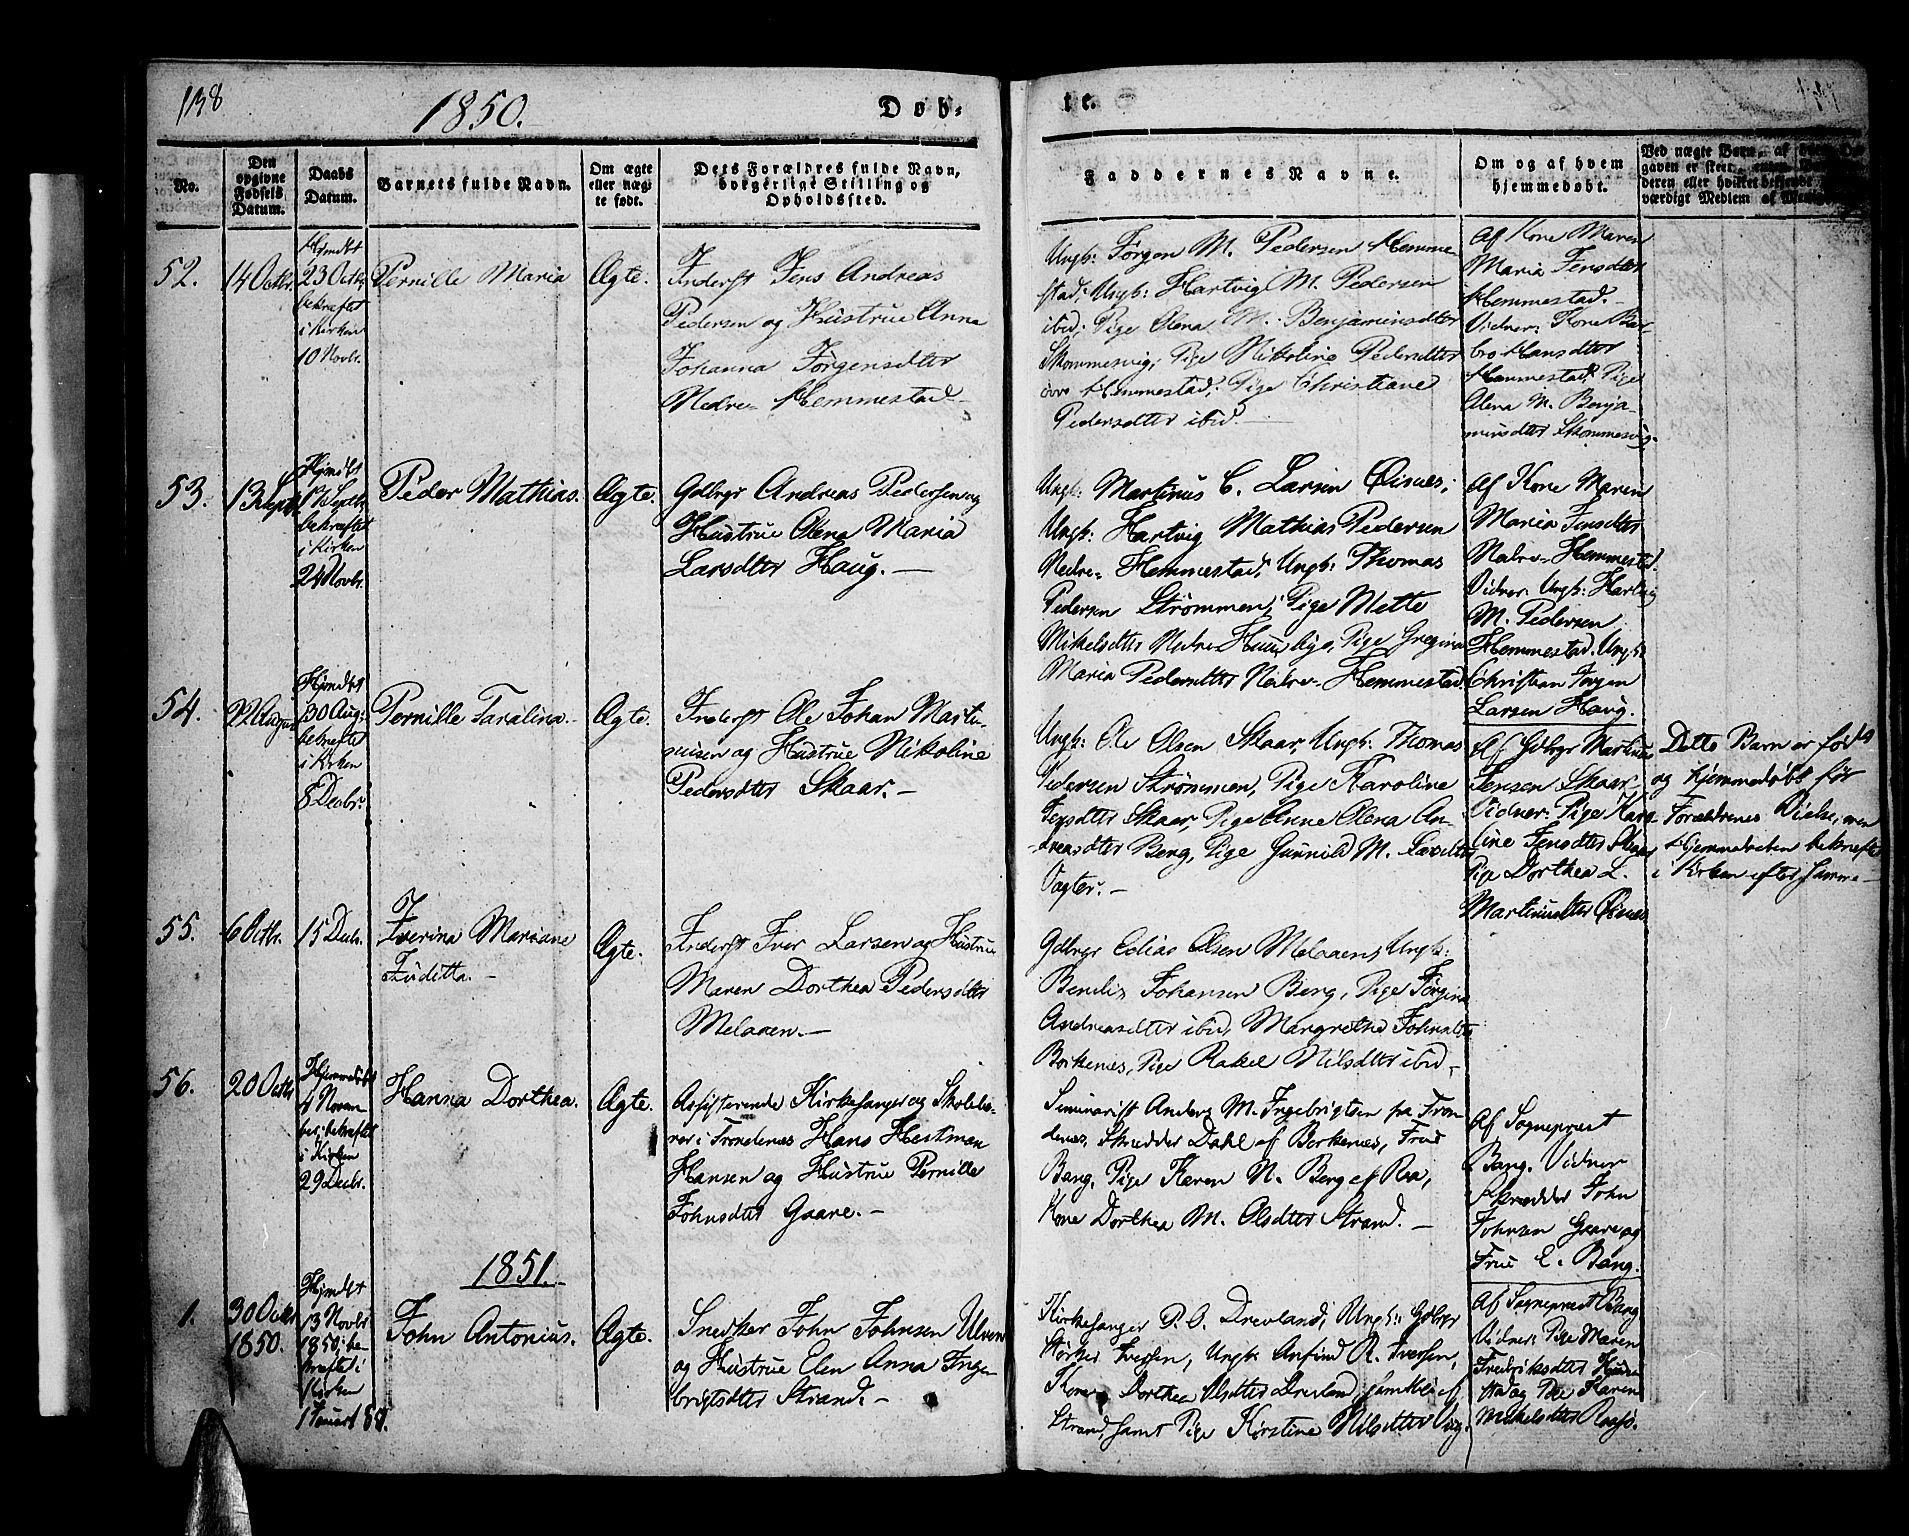 138
1850.
Døb-
te.
No.
Den opgivne Fødsels Datum.
Daabs Datum.
Barnets fulde Navn.
Om ægte eller uæg- te født.
Dets Forældres fulde Navn, borgerlige Stilling og Opholdssted.
Faddernes Navne.
Om og af hvem hjemmedøbt.
52.
14 Octbr.
Hjmdbt
23 Octbr.
bekræftet
i Kirken
10 Novbr.
Pernille Maria
Ægte.
Inderst Jens Andreas
Pedersen og Hustrue Anna
Johanna Jørgensdtter
Nedre-Hemmestad-
Ungk: Jørgen M. Pedersen Hemme-
stad, Ungk: Hartvig M. Pedersen
ibid; Pige Olena M. Benjaminsdtter
Skommesvig; Pige Nikoline Pedersdtter
Hemmestad; Pige Christiane
Pedersdtter ibid.-
Af Kone Maren
Maria Jensdtter
Hemmestad.-
Vidner: Kone Bar-
bro Hansdtter
Hemmestad, Pige
Olena M. Benja-
minsdtter Skommesvig.
53.
13 Septbr
Hjmdbt
Septbr.
bekræftet
i Kirken
24 Novbr.
Peder Mathias.
Ægte.
Gdbrgr Andreas Pedersen og
Hustrue Olena Maria
Larsdtter Haug.-
Ungk: Martinus C. Larsen
Ungk: Hartvig Mathias Pedersen
Nedre-Hemmestad, Ungk: Thomas
Pedersen Strømmen, Pige Mette
Mikelsdtter Nedre- Pige Gregina
Maria Pedersdtter Nedre-Hemmestad
Af Kone Maren
Maria Jensdtter
Nedre-Hemmestad.
Vidner: Ungk: Hartvig
M. Pedersen
Hemmestad, Ungk:
Christian Jørgen
Larsen Haug.
54.
22 August
Hjmdbt
30 Aug:
bekræftet
i Kirken
8 Decbr.
Pernille Taralina.-
Ægte.
Inderst Ole Johan Martin
nusen og Hustrue Nikoline
Pedersdtter Skaar.-
Ungk: Ole Olsen Skaar, Ungk: Thomas
Pedersen Strømmen, Pige Karoline
Jensdtter Skaar, Pige Anne Olena An-
dreasdtter Berg, Pige Gunnild M. Larsdtter
Vagter.-
Af Gdbrgr Martinus
Jensen Skaar.
Vidner: Pige Karo-
line Jensdtter Skaar
Pige Dorthea L.
Martinusdtter
Dette Barn er født
og hjemmedøbt før
Forældrenes Vielse, men
Hjemmedaaben bekræftet
i Kirken efter samme-
55.
6 Octbr.
15 Decbr.
Iverina Mariane
Juditta.-
Ægte.
Inderst Iver Larsen og Hustrue
Maren Dorthea Pedersdtter
Melaaen.-
Gdbrgr Edias Olsen Melaaen, Ungk:
Johansen Berg, Pige Jørgina
Andreasdtter ibid, Margrethe Johnsdtter
Borkenes, Pige Rakel Nilsdtter ibid-
56.
20 Octbr
Hjemmedøbt
4 Novem-
ber; bekræftet
i Kirken
29 Decbr.
Hanna Dorthea.
Ægte.
Assisterende Kirkesanger og Skolelæ-
rer i Trondenes Hans Hestman
Hansen og Hustrue Pernille
Johnsdtter Gaare.-
Seminarist Anders M. Ingebrigtsen paa Tron-
denes, Skrædder Dahl af Borkenes, Frue
Bang, Pige Karen N. Berg af Raa,
Kone Dorthea M. Olsdtter Strand.-
Af Sognepræst
Bang. Vidner
Skrædder John
Johnsen Gaare og
Frue E. Bang.
1851.
1.
30 Octbr
1850.
Hjmdbt
13 Novbr
1850; be-
kræftet i
Kirken
1 Januar 1851.
John Antonius.
Ægte.
Snedker John Johnsen Ulven
og Hustrue Elen Anna Inge-
brigtsdtter Strand.-
Kirkesanger P. O. Drevland, Ungk: Gdbrgr
Størker Iversen, Ungk: Anfind R. Iversen,
Kone Dorthea Olsdtter Drevland, samtlige af
Strand, samt Pige Kirstine Nilsdtter Vig.
Af Sognepræst Bang
Vidner: Pige Maren
Fredriksdtter
og Pige Karen
Mikelsdtter